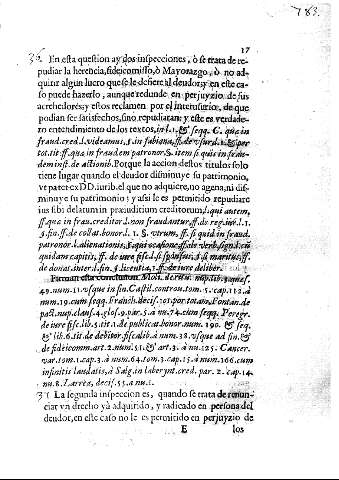 783.
17
36 En esta question ay dos inspecciones, ò se trata de re-
pudiar la herencia, fideicomisso, ò Mayorazgo, ò no ad-
quirir algun lucro que se le defiere al deudor: y en este ca-
so puede hazerlo, aunque redunde en perjuyzio de sus
acrehedores; y estos reclamen por el interusurio, de que
podian ser satisfechos, sino repudiara: y este es verdade-
ro entendimiento de los textos, in l. 1. & seqq. C. qua in
fraud. cred. l. videamus, § in fabiana, ff. de vsur. d. l. 1. per
tot. tit. ff. qua in fraudem patronor. § item si quis in frau-
dem it. de actionib. Porque la accion destos titulos solo
tiene lugar quando el deudor disminuye su patrimonio,
vt patet ex DD. iurib. el que no adquiere, no agena, ni dis-
minuye su patrimonio; y assi le es permitido repudiare
ius sibi delatum in præiudicium creditorum, l. qui autem,
ff. qua in fraud. creditor. l. non fraudantur, ff. de reg. iur. l. 1.
§. fin. ff. de collat. bonor. l. 1. §. vtrum, ff. si quid in fraud.
patronor. l. alienationis, § qui occasione ff. de verb. sign. l. cũ
quidam capitis, ff. de iure fisc. l. si sponsus, § si maritus, ff.
de donat. inter. l. fin. § licentia, C. ff. de iure deliber.
Firmant esta conclusion. Mol. de rit. nup. lib. 3. ques.
49. num. 11. vsque in fin. Castil. controu. tom. 5. cap. 112. à
num. 19. cum seqq. Franch. deci. 101. per totam. Fontan. de
pact. nup. claus. 4. glos. 9. par. 5. à nu. 74. cum seqq. Peregr.
de iure fisc. lib. 5. tit. 1. de publicat. bonor. num. 190. & seq.
& lib. 6. tit. de debitor. fiscalib. à num. 38. vsque ad fin. &
de fideicomm. art. 2. num. 51. & art. 3. à nu. 125. Cancer.
var. tom. 1. cap. 3. à num. 64. tom. 3. cap. 15. à num. 166. cum
infinitis laudatis, à Salg. in laberynt. cred. par. 2. cap. 14.
nu. 8. Larrea, decis. 55. à nu. 1.
31 La segunda inspeccion es, quando se trata de renun-
ciar vn drecho yà adquirido, y radicado en persona del
deudor, en este caso no le es permitido en perjuyzio de
E los